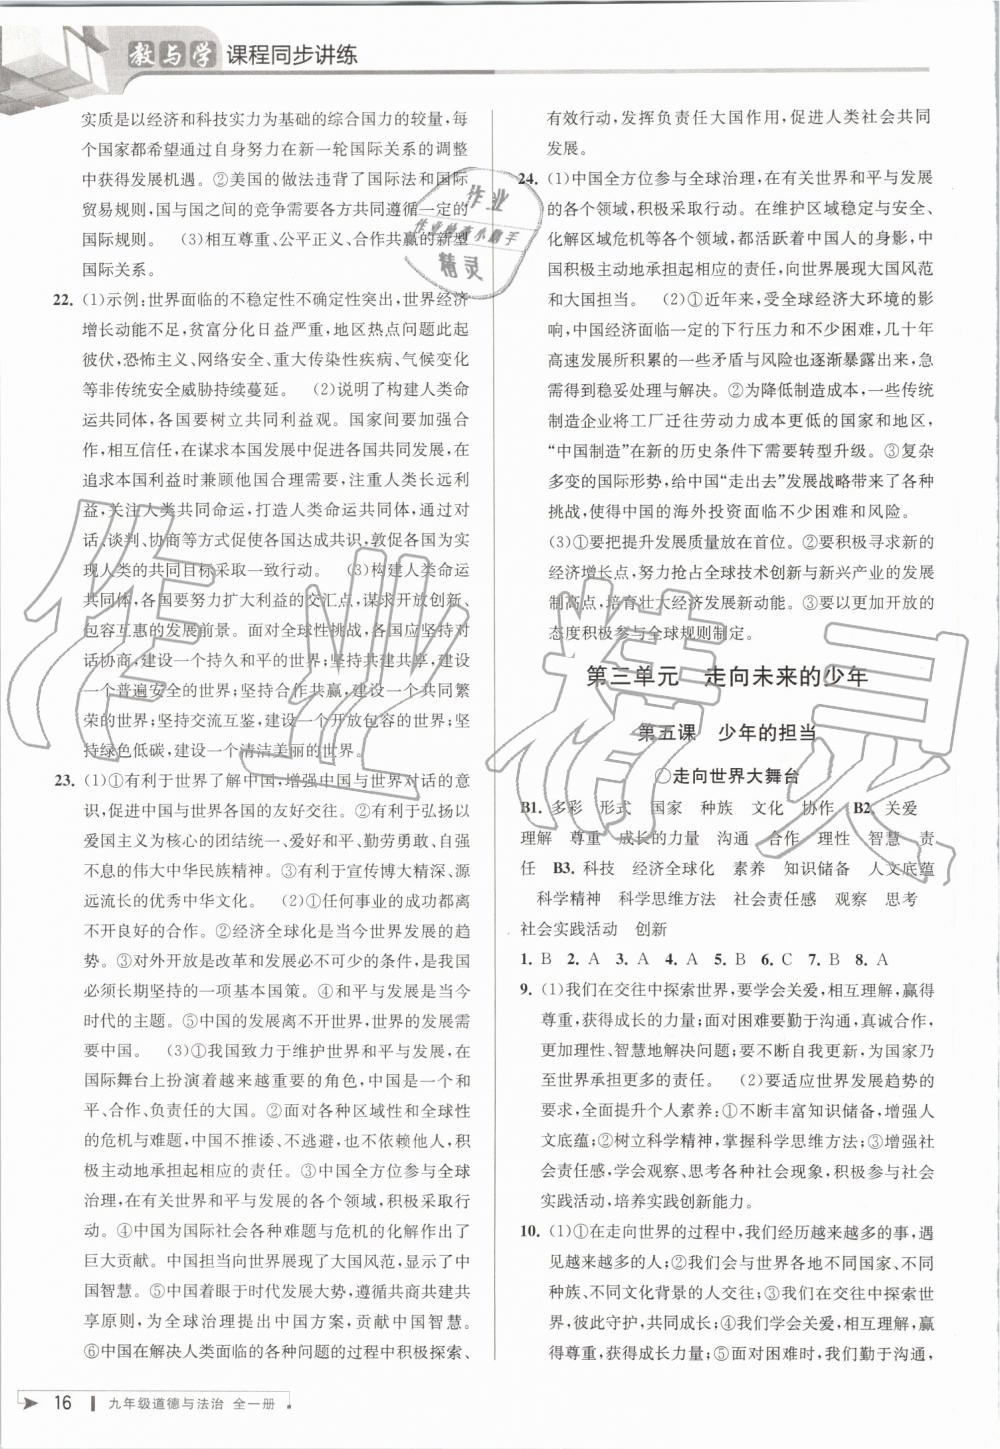 教与学 课程同步讲练
实质是以经济和科技实力为基础的综合国力的较量,每
个国家都希望通过自身努力在新一轮国际关系的调整
中获得发展机遇。②美国的做法违背了国际法和国际
贸易规则,国与国之间的竞争需要各方共同遵循一定的
国际规则。 (3)相互尊重、公平正义、合作共赢的新型
国际关系。
22. (1)示例:世界面临的不稳定性不确定性突出,世界经济
增长动能不足,贫富分化日益严重,地区热点问题此起
彼伏,恐怖主义、网络安全、重大传染性疾病、气候变化
等非传统安全威胁持续蔓延。 (2)说明了构建人类命
运共同体,各国要树立共同利益观。国家间要加强合
作,相互信任,在谋求本国发展中促进各国共同发展,在
追求本国利益时兼顾他国合理需要,注重人类长远利
益,关注人类共同命运,打造人类命运共同体,通过对
话、谈判、协商等方式促使各国达成共识,敦促各国为实
现人类的共同目标采取一致行动。 (3)构建人类命运
共同体,各国要努力扩大利益的交汇点,谋求开放创新、
包容互惠的发展前景。面对全球性挑战,各国应坚持对
话协商,建设一个持久和平的世界;坚持共建共享,建设
一个普遍安全的世界;坚持合作共赢,建设一个共同繁
荣的世界;坚持交流互鉴,建设一个开放包容的世界;坚
持绿色低碳,建设一个清洁美丽的世界。
23. (1)①有利于世界了解中国,增强中国与世界对话的意
识,促进中国与世界各国的友好交往。②有利于弘扬以
爱国主义为核心的团结统一、爱好和平、勤劳勇敢、自强
不息的伟大中华民族精神。③有利于宣传博大精深、源
远流长的优秀中华文化。 (2)①任何事业的成功都离
不开良好的合作。②经济全球化是当今世界发展的趋
势。③对外开放是改革和发展必不可少的条件,是我国
必须长期坚持的一项基本国策。④和平与发展是当今
时代的主题。⑤中国的发展离不开世界,世界的发展需
要中国。 (3)①我国致力于维护世界和平与发展,在
国际舞台上扮演着越来越重要的角色,中国是一个和
平、合作、负责任的大国。②面对各种区域性和全球性
的危机与难题,中国不推诿、不逃避,也不依赖他人,积
极主动地承担起相应的责任。③中国全方位参与全球
治理,在有关世界和平与发展的各个领域,积极采取行
动。④中国为国际社会各种难题与危机的化解作出了
巨大贡献。中国担当向世界展现了大国风范,显示了中
国智慧。⑤中国着眼于时代发展大势,遵循共商共建共
享原则,为全球治理提出中国方案,贡献中国智慧。
⑥中国在解决人类面临的各种问题的过程中积极探索、
有效行动,发挥负责任大国作用,促进人类社会共同
发展。
24. (1)中国全方位参与全球治理,在有关世界和平与发展
的各个领域,积极采取行动。在维护区域稳定与安全、
化解区域危机等各个领域,都活跃着中国人的身影,中
国积极主动地承担起相应的责任,向世界展现大国风范
和大国担当。 (2)①近年来,受全球经济大环境的影
响,中国经济面临一定的下行压力和不少困难,几十年
高速发展所积累的一些矛盾与风险也逐渐暴露出来,急
需得到稳妥处理与解决。②为降低制造成本,一些传统
制造企业将工厂迁往劳动力成本更低的国家和地区,
“中国制造”在新的历史条件下需要转型升级。③复杂
多变的国际形势,给中国“走出去”发展战略带来了各种
挑战,使得中国的海外投资面临不少困难和风险。
(3)①要把提升发展质量放在首位。②要积极寻求新的
经济增长点,努力抢占全球技术创新与新兴产业的发展
制高点,培育壮大经济发展新动能。③要以更加开放的
态度积极参与全球规则制定。
第三单元 走向未来的少年
第五课 少年的担当
○走向世界大舞台
B1. 多彩 形式 国家 种族 文化 协作 B2. 关爱
理解 尊重 成长的力量 沟通 合作 理性 智慧 责
任 B3. 科技 经济全球化 素养 知识储备 人文底蕴
科学精神 科学思维方法 社会责任感 观察 思考
社会实践活动 创新
1. B 2. A 3. A 4. A 5. B 6. C 7. B 8. A
9. (1)我们在交往中探索世界,要学会关爱,相互理解,赢得
尊重,获得成长的力量;面对困难要勤于沟通,真诚合作,
更加理性、智慧地解决问题;要不断自我更新,为国家乃
至世界承担更多的责任。 (2)要适应世界发展趋势的
要求,全面提升个人素养:①不断丰富知识储备,增强人
文底蕴;②树立科学精神,掌握科学思维方法;③增强社
会责任感,学会观察、思考各种社会现象,积极参与社会
实践活动,培养实践创新能力。
10. (1)①在走向世界的过程中,我们经历越来越多的事,遇
见越来越多的人;②我们会与世界各地不同国家、不同
种族、不同文化背景的人交往;③我们共同分享多彩世
界,彼此守护,共同成长;④我们学会关爱,相互理解,赢
得尊重,获得成长的力量;⑤面对困难时,我们勤于沟通,
16 九年级道德与法治 全一册
作业
作业检查小助手
精灵
作业精灵